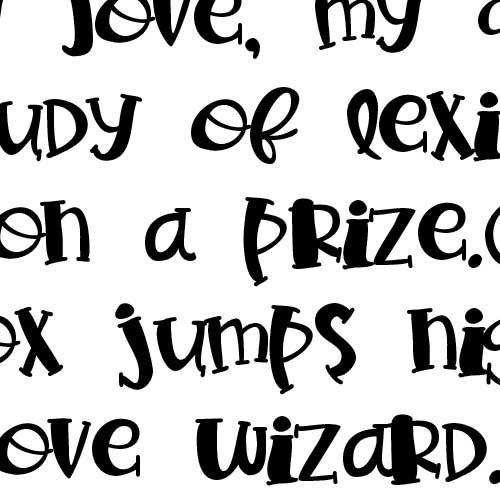 jove, my
udy of lexi
on a prize.
ox jumps nig
ove wizard.